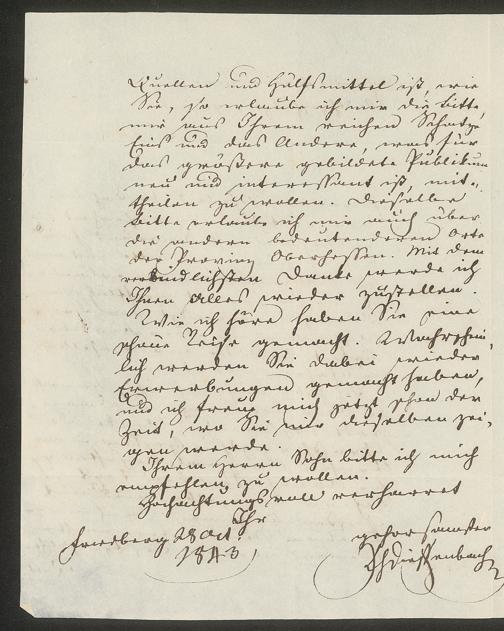 Quellen und Hülfsmittel ist, wie
Sie, so erlaube ich mir die Bitte,
mir aus Ihrem reichen Schatze
Eins und das Andere, was für
das größere gebildete Publikum
neu und interessant ist, mit-
theilen zu wollen. Dieselbe
Bitte erlaube ich mir auch über
die andern bedeutenderen Orte
der Provinz Oberhessen. Mit dem
verbindlichsten Danke werde ich
Ihnen Alles wieder zustellen.
Wie ich höre haben Sie eine
schöne Reise gemacht. Wahrschein-
lich werden Sie dabei wieder
Erwerbungen gemacht haben,
und ich freue mich jetzt schon der
Zeit, wo Sie mir dieselben zei-
gen werde.
Ihrem Herrn Sohn bitte ich mich
empfehlen zu wollen.
Hochachtungsvoll verharret
Ihr
Friedberg 28 Oct
1843
gehorsamster
Dieffenbach